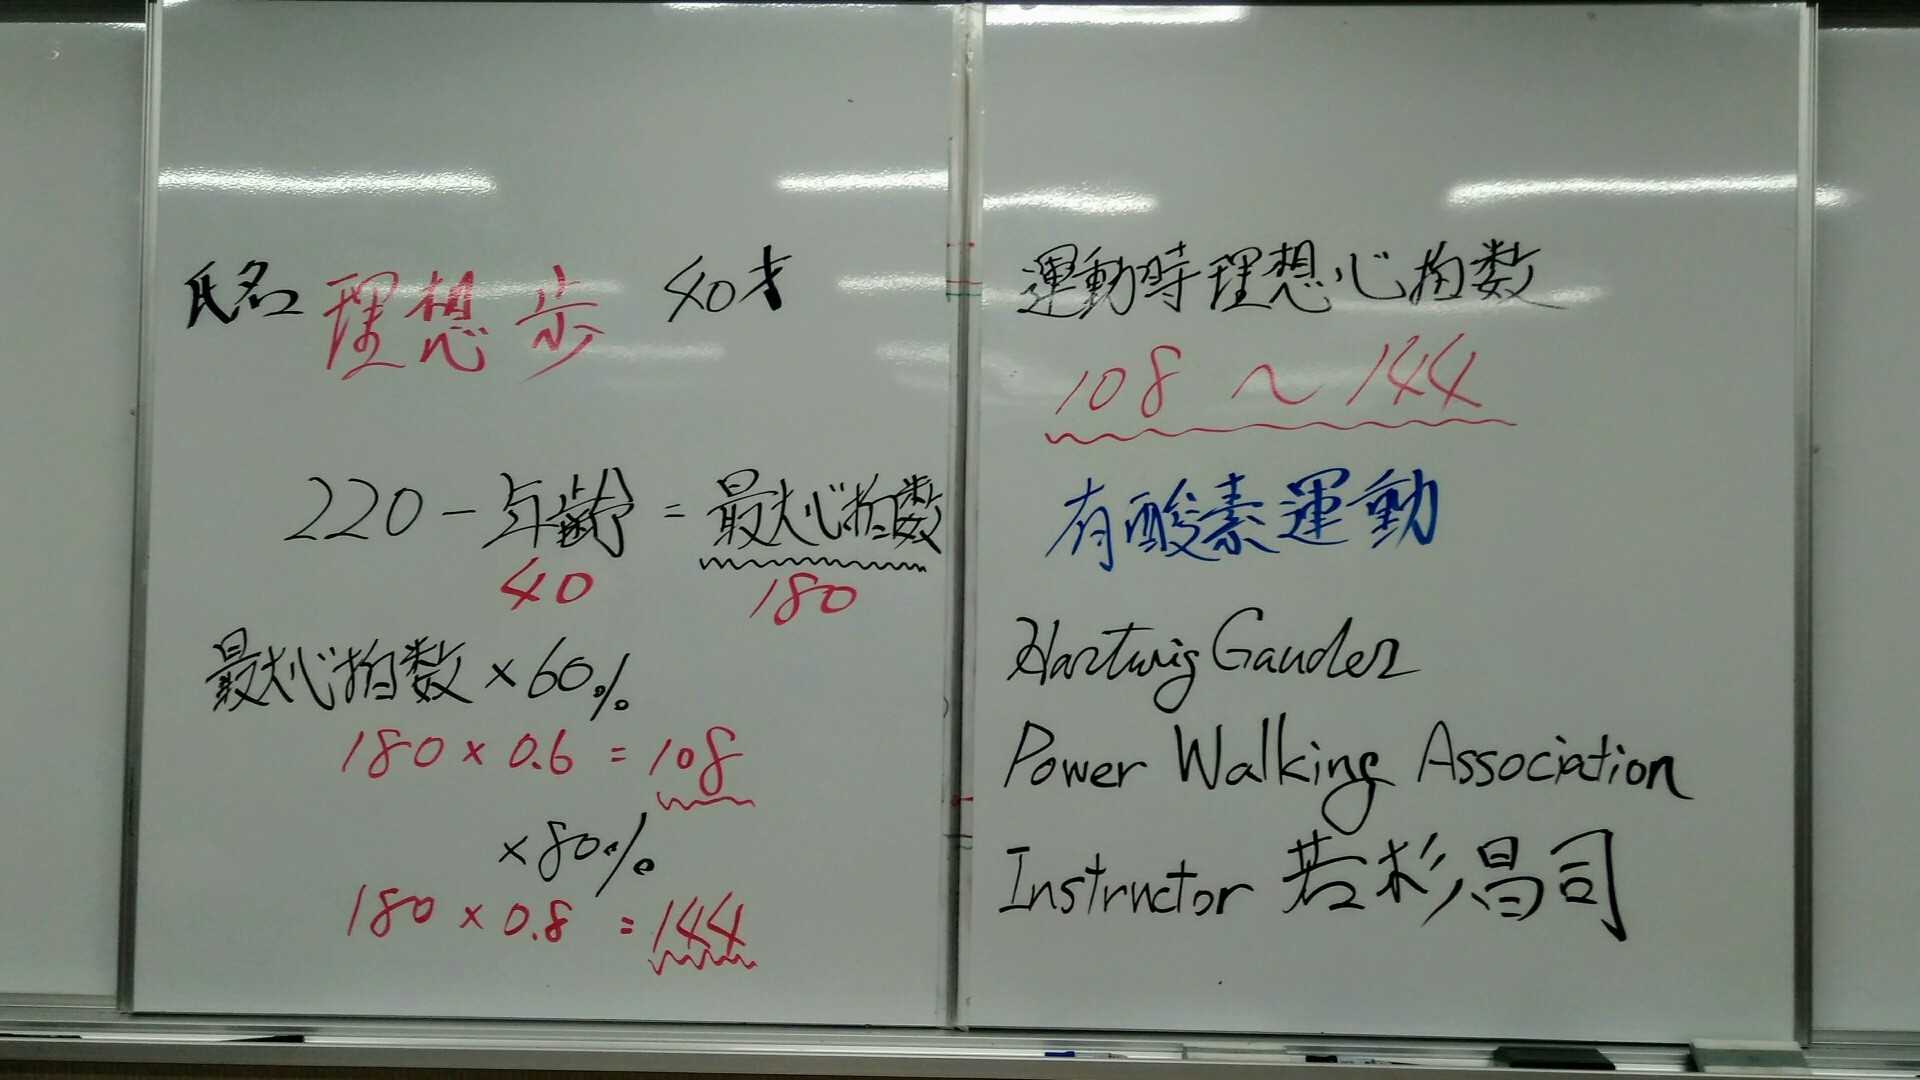 氏名 理想 歩 40才
220-年齢=最大心拍数
40 180
最大心拍数×60%
180×0.6=108
×80%
180×0.8=144
運動時理想心拍数
108～144
有酸素運動
Hartwig Gauder
Power Walking Association
Instructor 若杉昌司